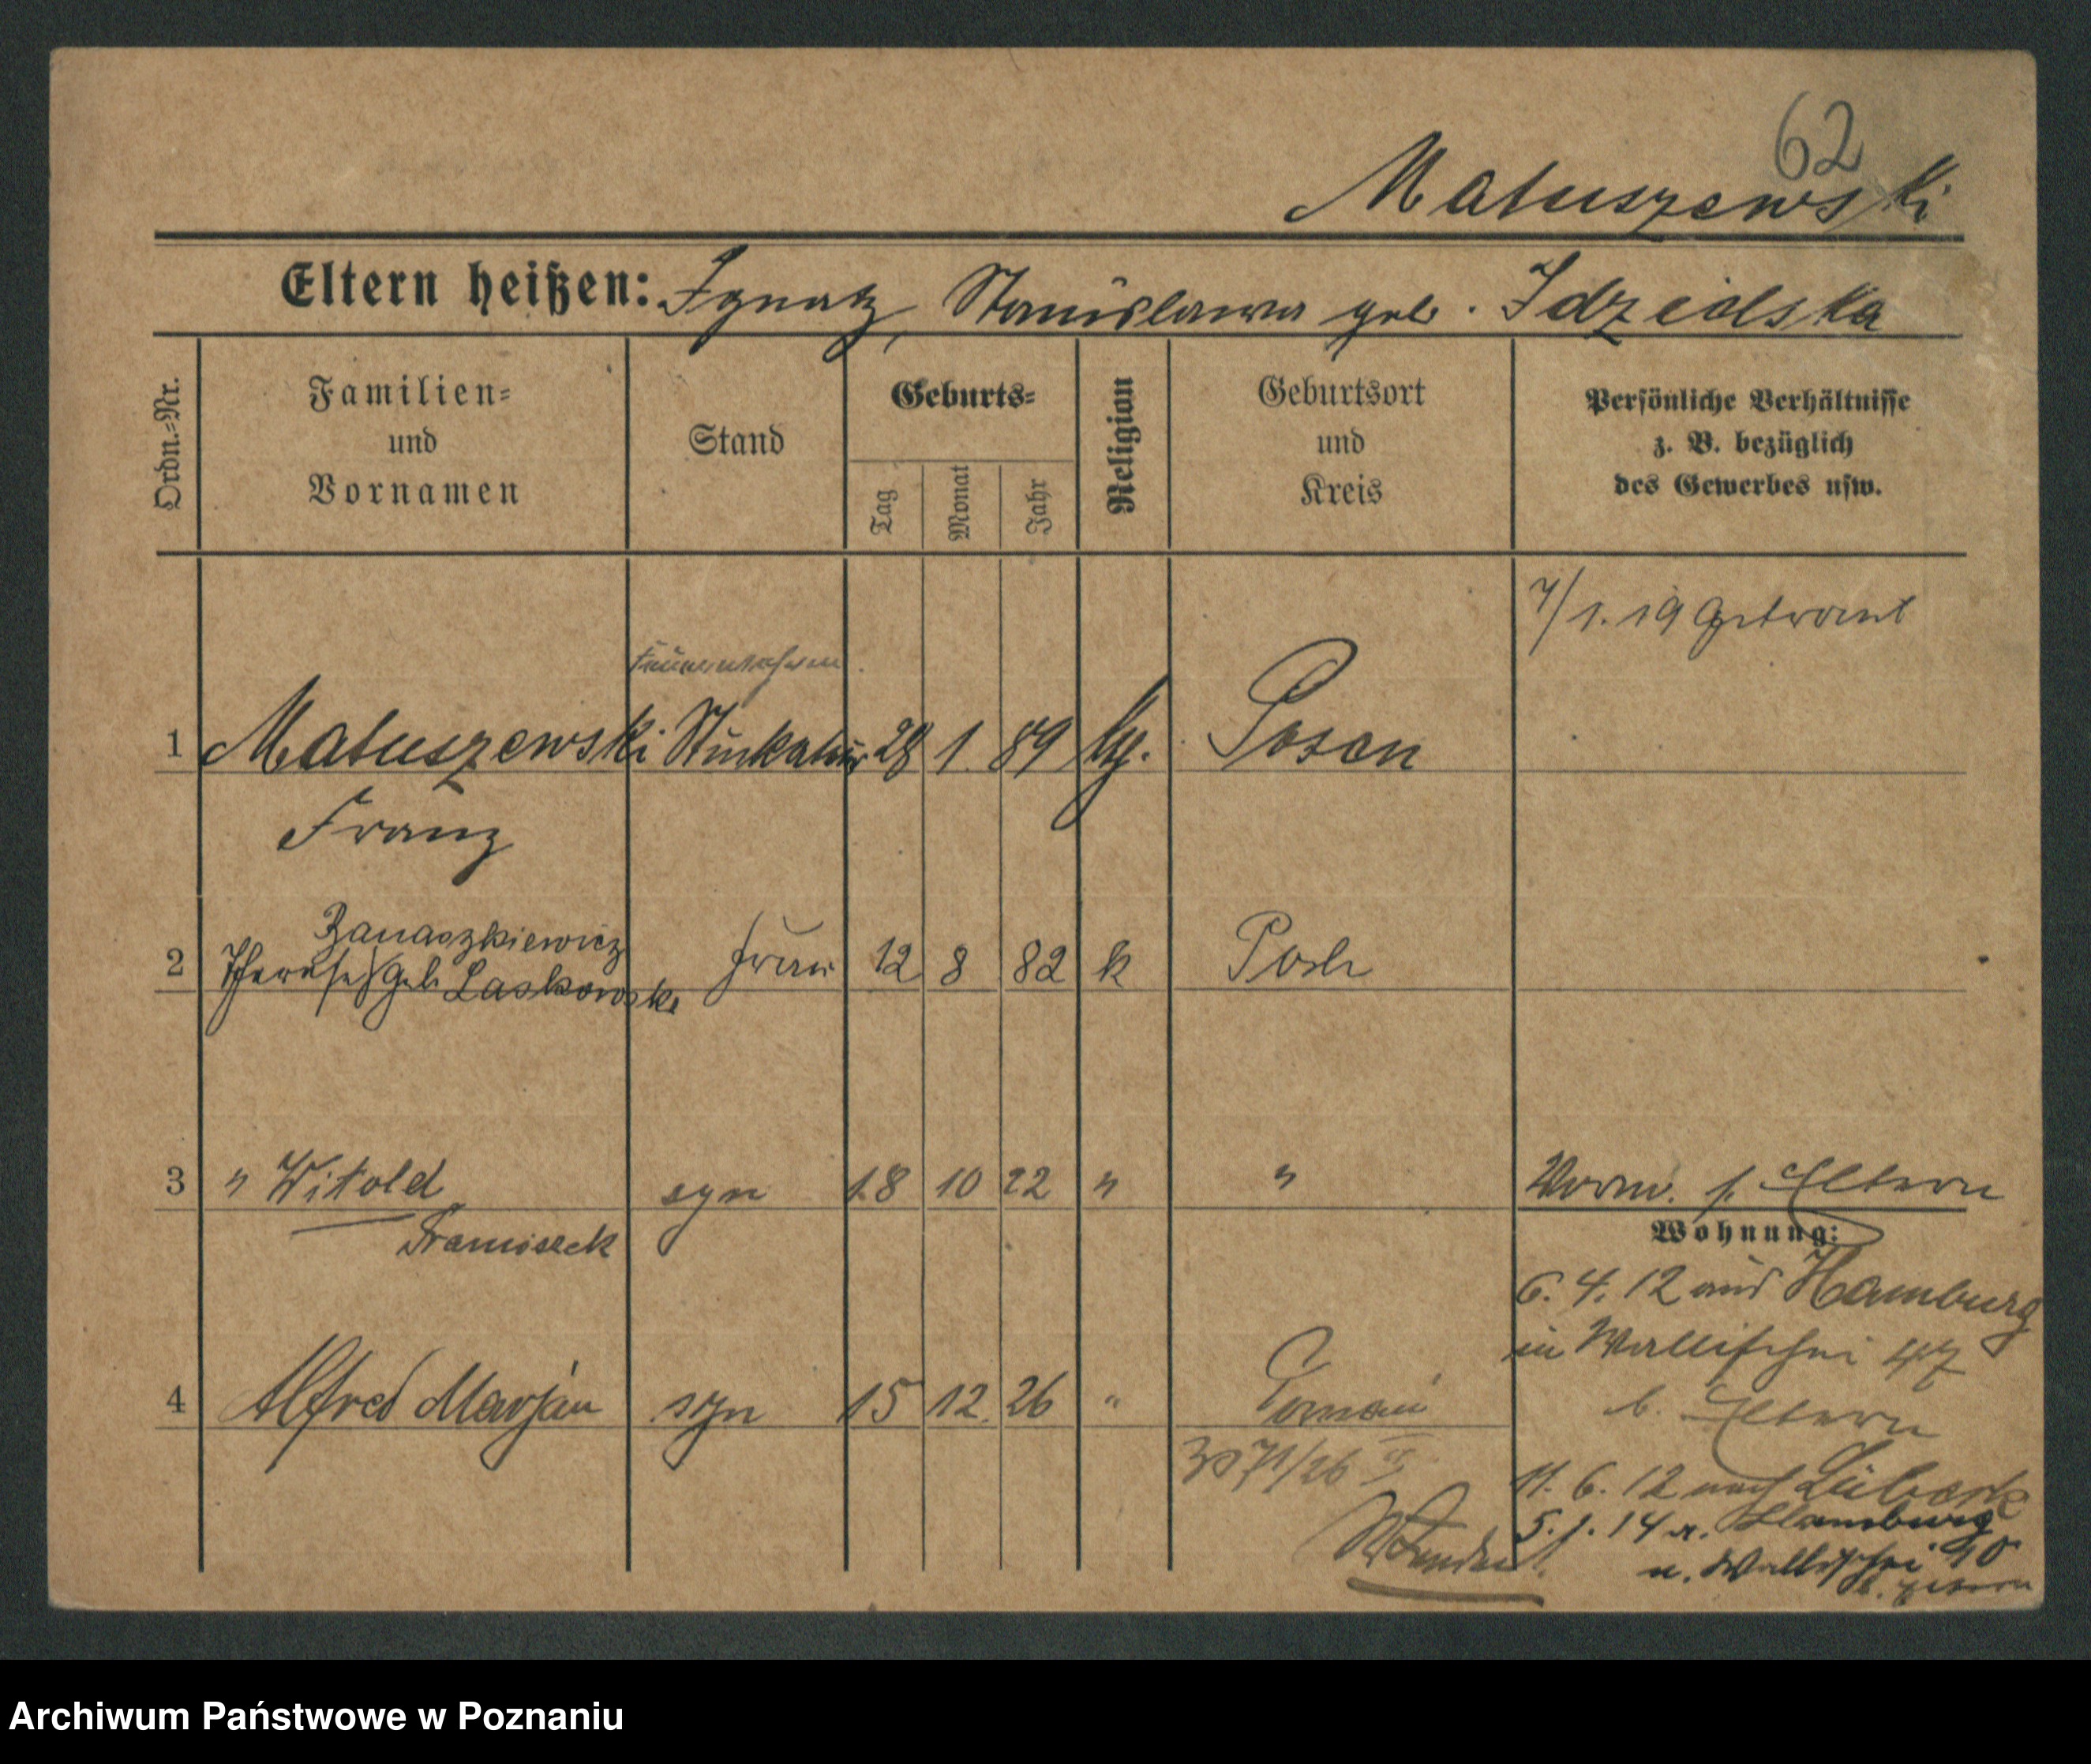 62
Matuszewski
Eltern heißen: Ignatz, Stanislawa geb. Idzielska
Ordn.-Nr.
Familien-
und
Vornamen
Stand
Geburts-
Tag
Monat
Jahr
Religion
Geburtsort
und
Kreis
Persönliche Verhältnisse
z. B. bezüglich
des Gewerbes usw.
7/1. 19 Getraut
1 Matuszewski Stukateur 28 1. 89 kg. Posen
Franz
Banaszkiewicz
2 Therese geb Laskowska Frau 12 8 82 k Posen
3 " Witold syn 18 10 22 " " Vorm. s. Eltern
Franciszek
Wohnung:
6. 4. 12 aus Hamburg
in Wallischei 47
b. Eltern
4 Alfred Marjan syn 15 12. 26 " Poznań
3071/26 II
11. 6. 12 nach Lübeck
5. 1. 14 v. Hamburg
n. Wallischei 40
b. Eltern
Archiwum Państwowe w Poznaniu